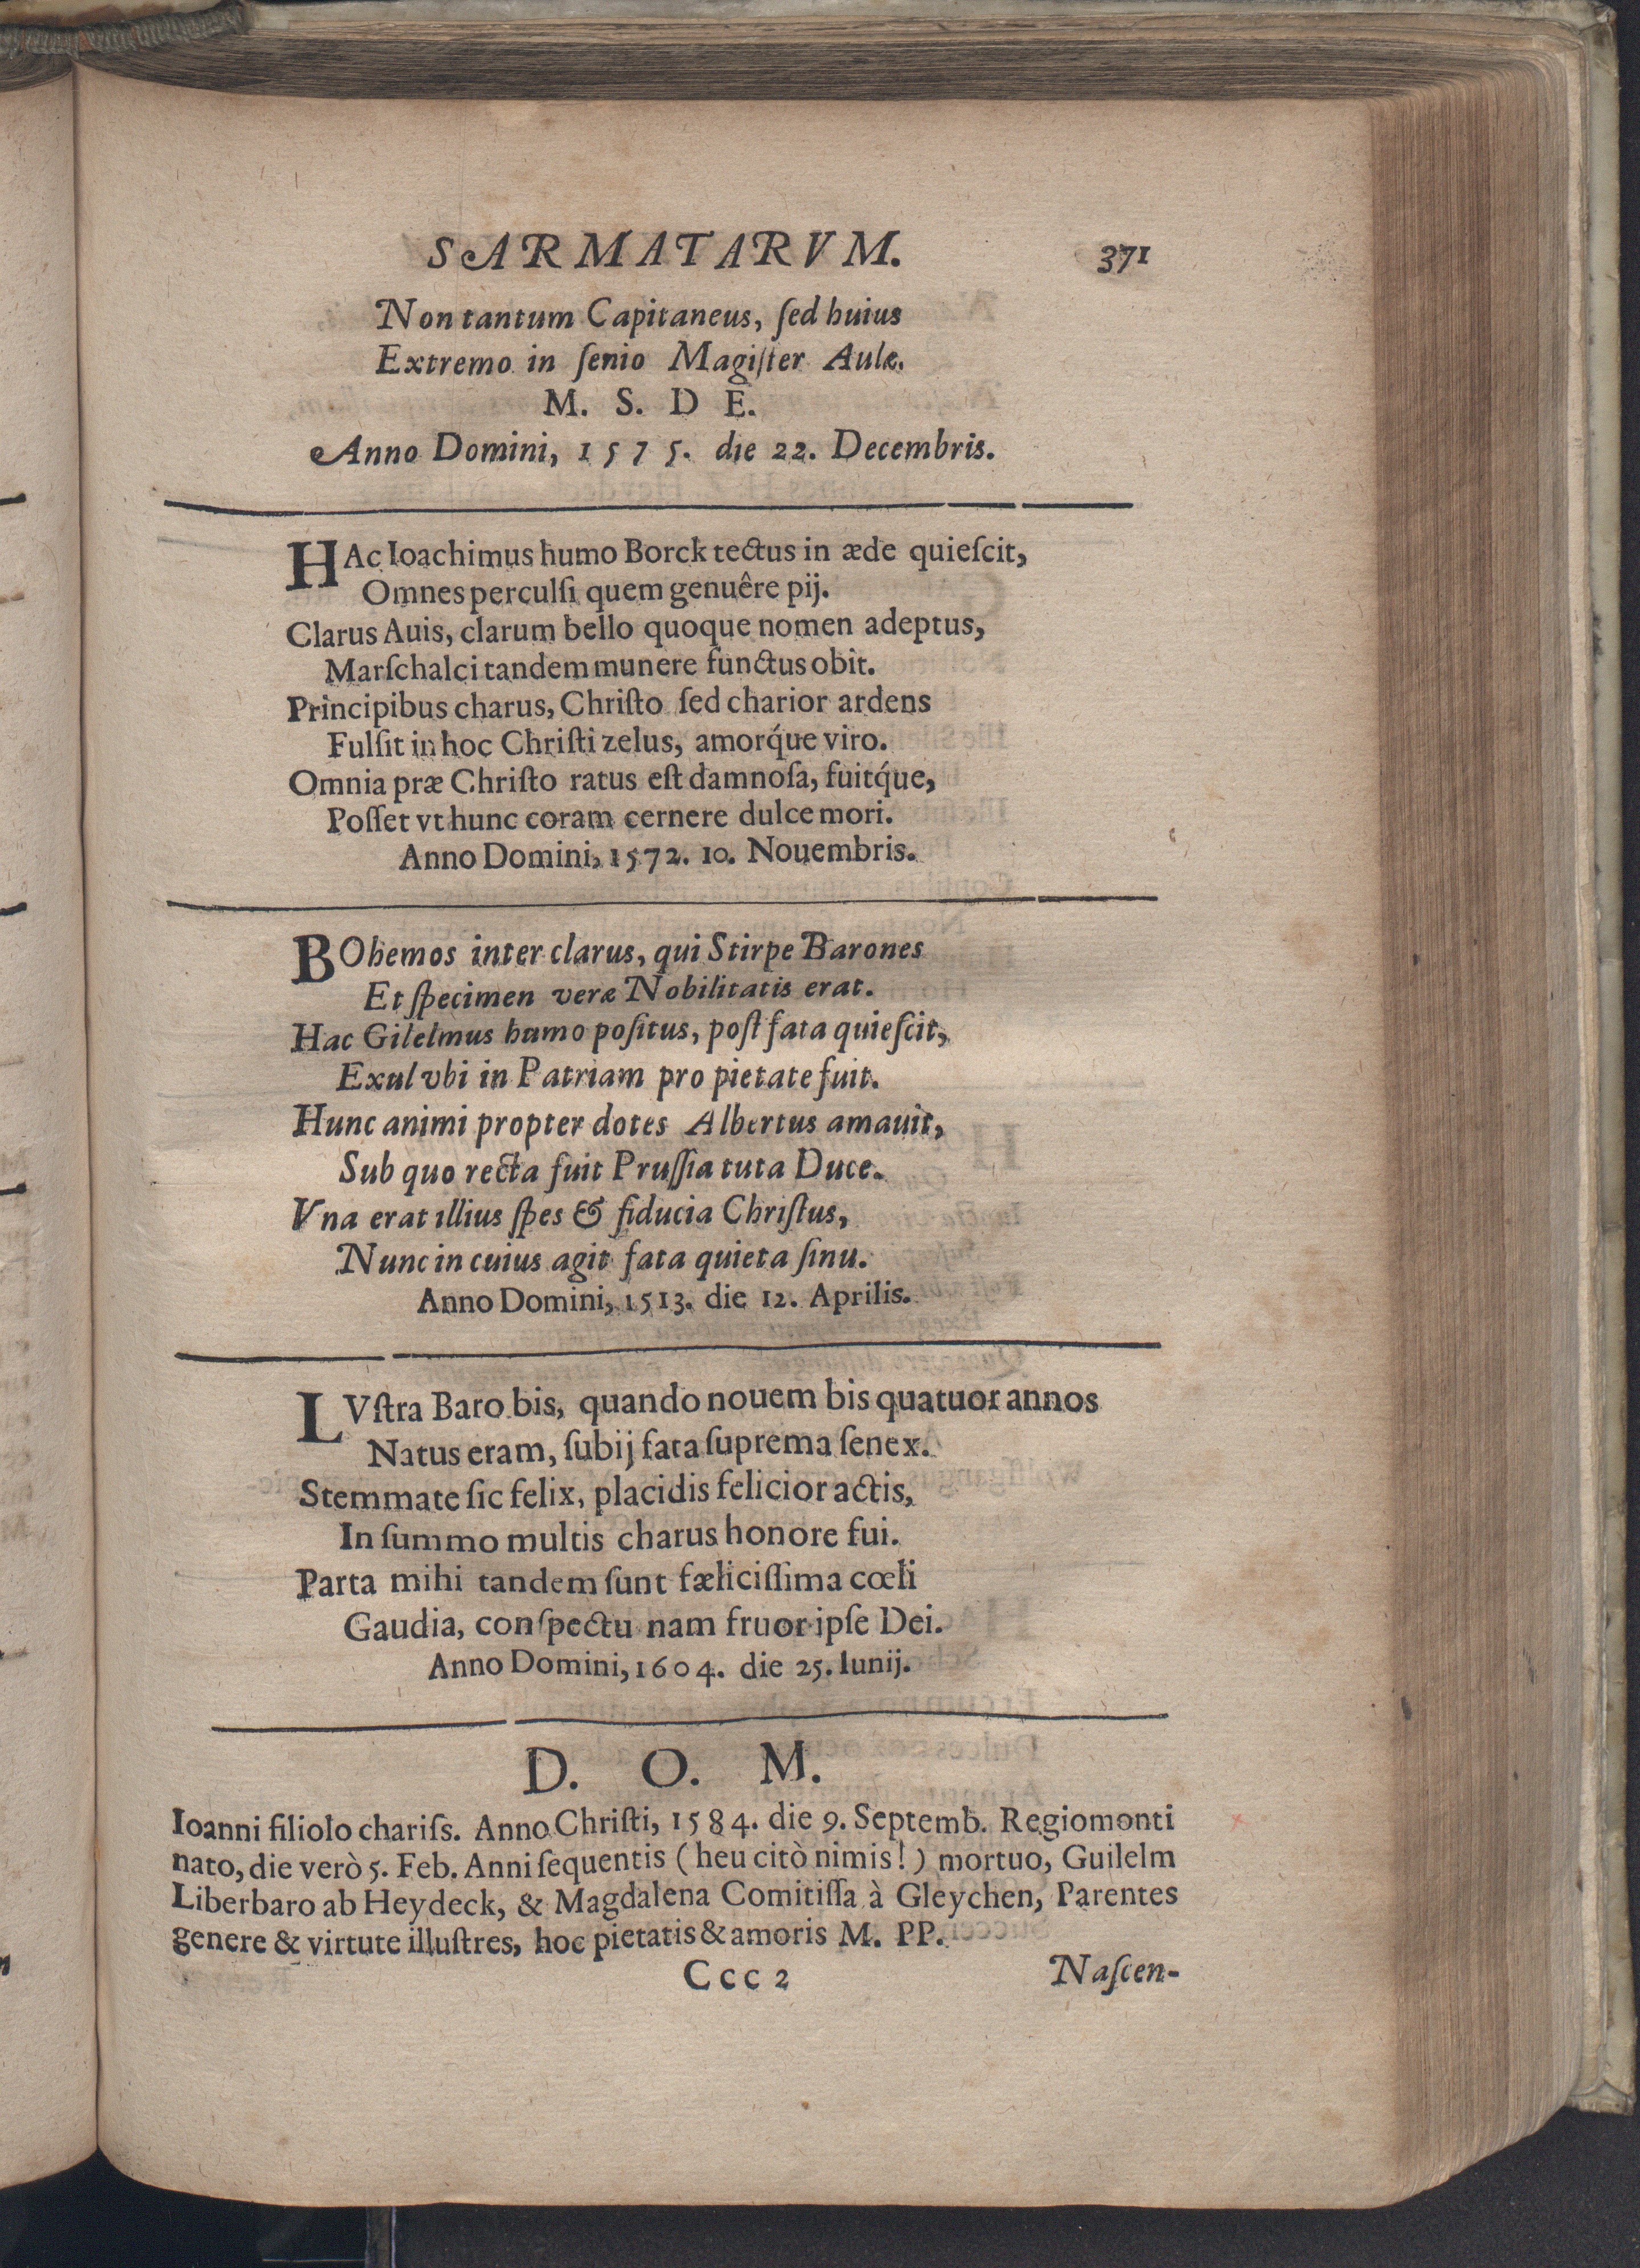 SARMATARVM. 371
Non tantum Capitaneus, ſed huius
Extremo in ſenio Magiſter Aulæ.
M. S. D E.
Anno Domini, 1575. die 22. Decembris.
HAc Ioachimus humo Borck tectus in æde quieſcit,
Omnes perculſi quem genuêre pij.
Clarus Auis, clarum bello quoque nomen adeptus,
Marſchalci tandem munere functus obit.
Principibus charus, Chriſto ſed charior ardens
Fulſit in hoc Chriſti zelus, amorq́ue viro.
Omnia præ Chriſto ratus eſt damnoſa, fuitq́ue,
Poſſet vt hunc coram cernere dulce mori.
Anno Domini, 1572. 10. Nouembris.
BOhemos inter clarus, qui Stirpe Barones
Et ſpecimen veræ Nobilitatis erat.
Hac Gilelmus humo poſitus, poſt fata quieſcit,
Exul vbi in Patriam pro pietate fuit.
Hunc animi propter dotes Albertus amauit,
Sub quo recta fuit Pruſſia tuta Duce.
Vna erat illius ſpes & fiducia Chriſtus,
Nunc in cuius agit fata quieta ſinu.
Anno Domini, 1513. die 12. Aprilis.
LVſtra Baro bis, quando nouem bis quatuor annos
Natus eram, ſubij fata ſuprema ſenex.
Stemmate ſic felix, placidis felicior actis,
In ſummo multis charus honore fui.
Parta mihi tandem ſunt fæliciſſima cœli
Gaudia, conſpectu nam fruor ipſe Dei.
Anno Domini, 1604. die 25. Iunij.
D. O. M.
Ioanni filiolo chariſs. Anno Chriſti, 1584. die 9. Septemb. Regiomonti
nato, die verò 5. Feb. Anni ſequentis (heu citò nimis!) mortuo, Guilelm
Liberbaro ab Heydeck, & Magdalena Comitiſſa à Gleychen, Parentes
genere & virtute illuſtres, hoc pietatis & amoris M. PP.
Ccc 2 Naſcen-